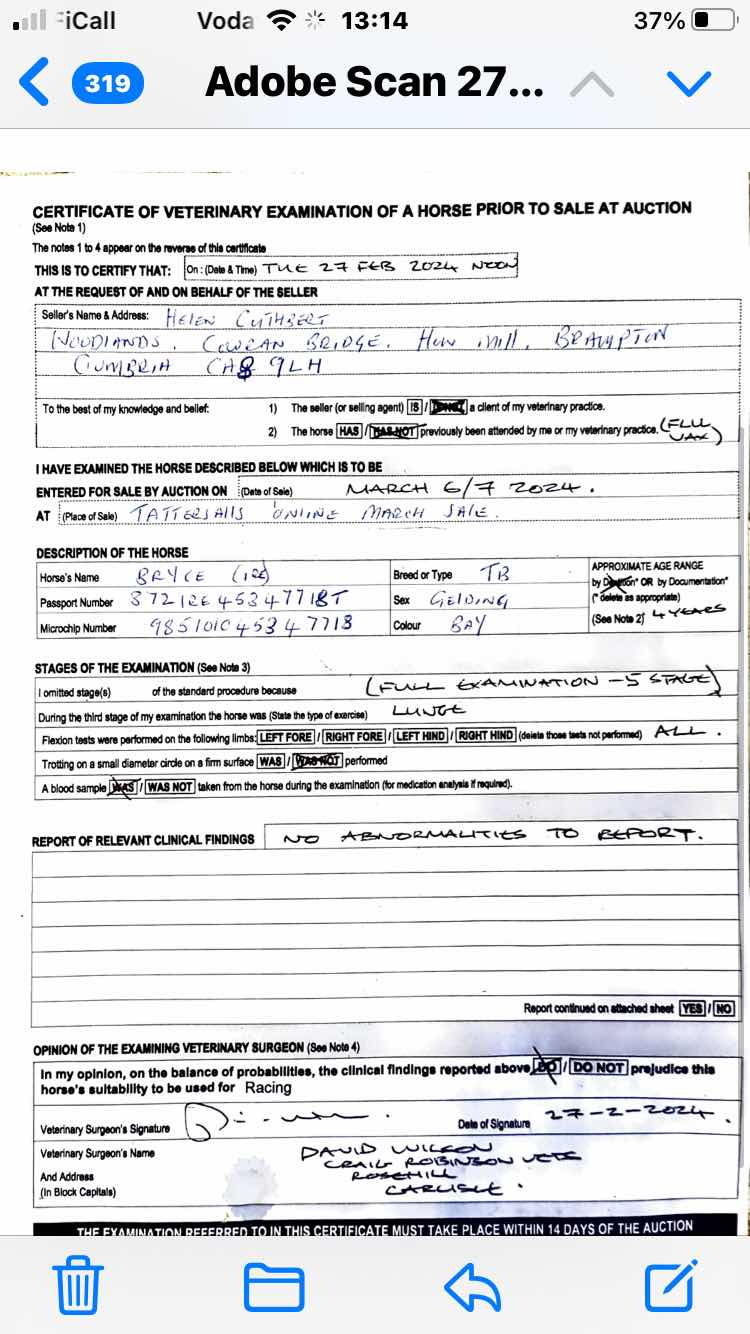 iCall Voda 13:14 37%
319 Adobe Scan 27...
CERTIFICATE OF VETERINARY EXAMINATION OF A HORSE PRIOR TO SALE AT AUCTION
(See Note 1)
The notes 1 to 4 appear on the reverse of this certificate
THIS IS TO CERTIFY THAT: On : (Date & Time) TUE 27 FEB 2024 NOON
AT THE REQUEST OF AND ON BEHALF OF THE SELLER
Seller's Name & Address: HELEN CUTHBERT
WOODLANDS. COWRAN BRIDGE. HOW MILL. BRAMPTON
CUMBRIA CA8 9LH
To the best of my knowledge and belief: 1) The seller (or selling agent) IS / IS NOT a client of my veterinary practice.
2) The horse HAS / HAS NOT previously been attended by me or my veterinary practice. (FLU
VAX)
I HAVE EXAMINED THE HORSE DESCRIBED BELOW WHICH IS TO BE
ENTERED FOR SALE BY AUCTION ON (Date of Sale) MARCH 6/7 2024.
AT (Place of Sale) TATTERSALLS ONLINE MARCH SALE.
DESCRIPTION OF THE HORSE
Horse's Name BRYCE (IRE) Breed or Type TB APPROXIMATE AGE RANGE
by Dentition* OR by Documentation*
Passport Number Sex GELDING (* delete as appropriate)
Microchip Number Colour BAY (See Note 2) 4 YEARS
STAGES OF THE EXAMINATION (See Note 3)
I omitted stage(s) of the standard procedure because (FULL EXAMINATION - 5 STAGE)
During the third stage of my examination the horse was (State the type of exercise) LUNGE
Flexion tests were performed on the following limbs: LEFT FORE / RIGHT FORE / LEFT HIND / RIGHT HIND (delete those tests not performed) ALL.
Trotting on a small diameter circle on a firm surface WAS / WAS NOT performed
A blood sample WAS / WAS NOT taken from the horse during the examination (for medication analysis if required).
REPORT OF RELEVANT CLINICAL FINDINGS NO ABNORMALITIES TO REPORT.
Report continued on attached sheet YES / NO
OPINION OF THE EXAMINING VETERINARY SURGEON (See Note 4)
In my opinion, on the balance of probabilities, the clinical findings reported above DO / DO NOT prejudice this
horse's suitability to be used for Racing
Veterinary Surgeon's Signature Date of Signature 27-2-2024.
Veterinary Surgeon's Name DAVID WILSON
CRAIG ROBINSON VETS
And Address ROSEHILL
(In Block Capitals) CARLISLE.
THE EXAMINATION REFERRED TO IN THIS CERTIFICATE MUST TAKE PLACE WITHIN 14 DAYS OF THE AUCTION